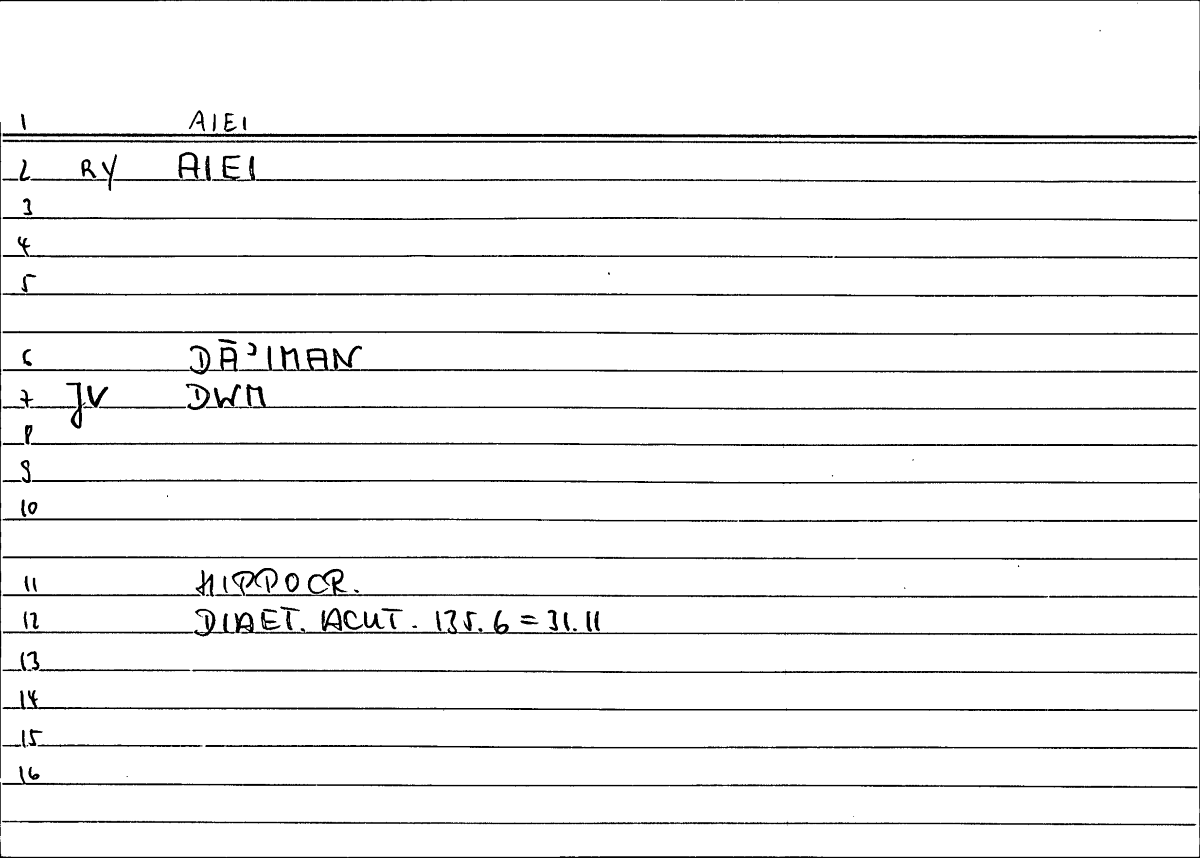 1 AIEI
2 RY AIEI
3
4
5
6 DĀʾIMAN
7 JV DWM
8
9
10
11 HIPPOCR.
12 DIAET. ACUT. 135.6 = 31.11
13
14
15
16